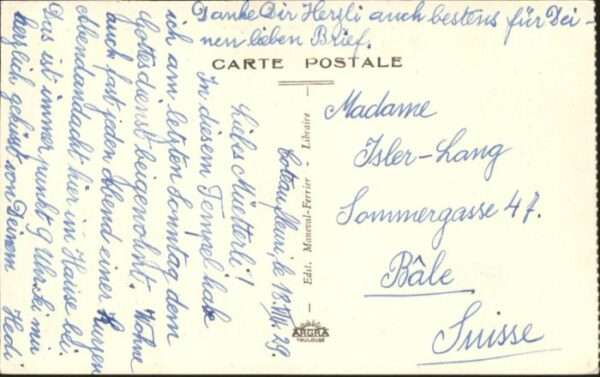 Danke Dir Herzli auch bestens für Dei-
nen lieben Brief.
CARTE POSTALE
Madame
Isler-Lang
Sommergasse 47.
Bâle
Suisse
Edit. Maneval-Ferrier - Libraire
ARGRA
TOULOUSE
le 18. VIII. 29.
Liebs Mutterli!
In diesem Tempel habe
ich am letzten Sonntag dem
Gottesdienst beigewohnt. Wohne
auch fast jeden Abend einer kurzen
Abendandacht hier im Hause bei.
Das ist immer punkt 9 Uhr. Sei nun
herzlich gegrüsst von Deinem Hedi